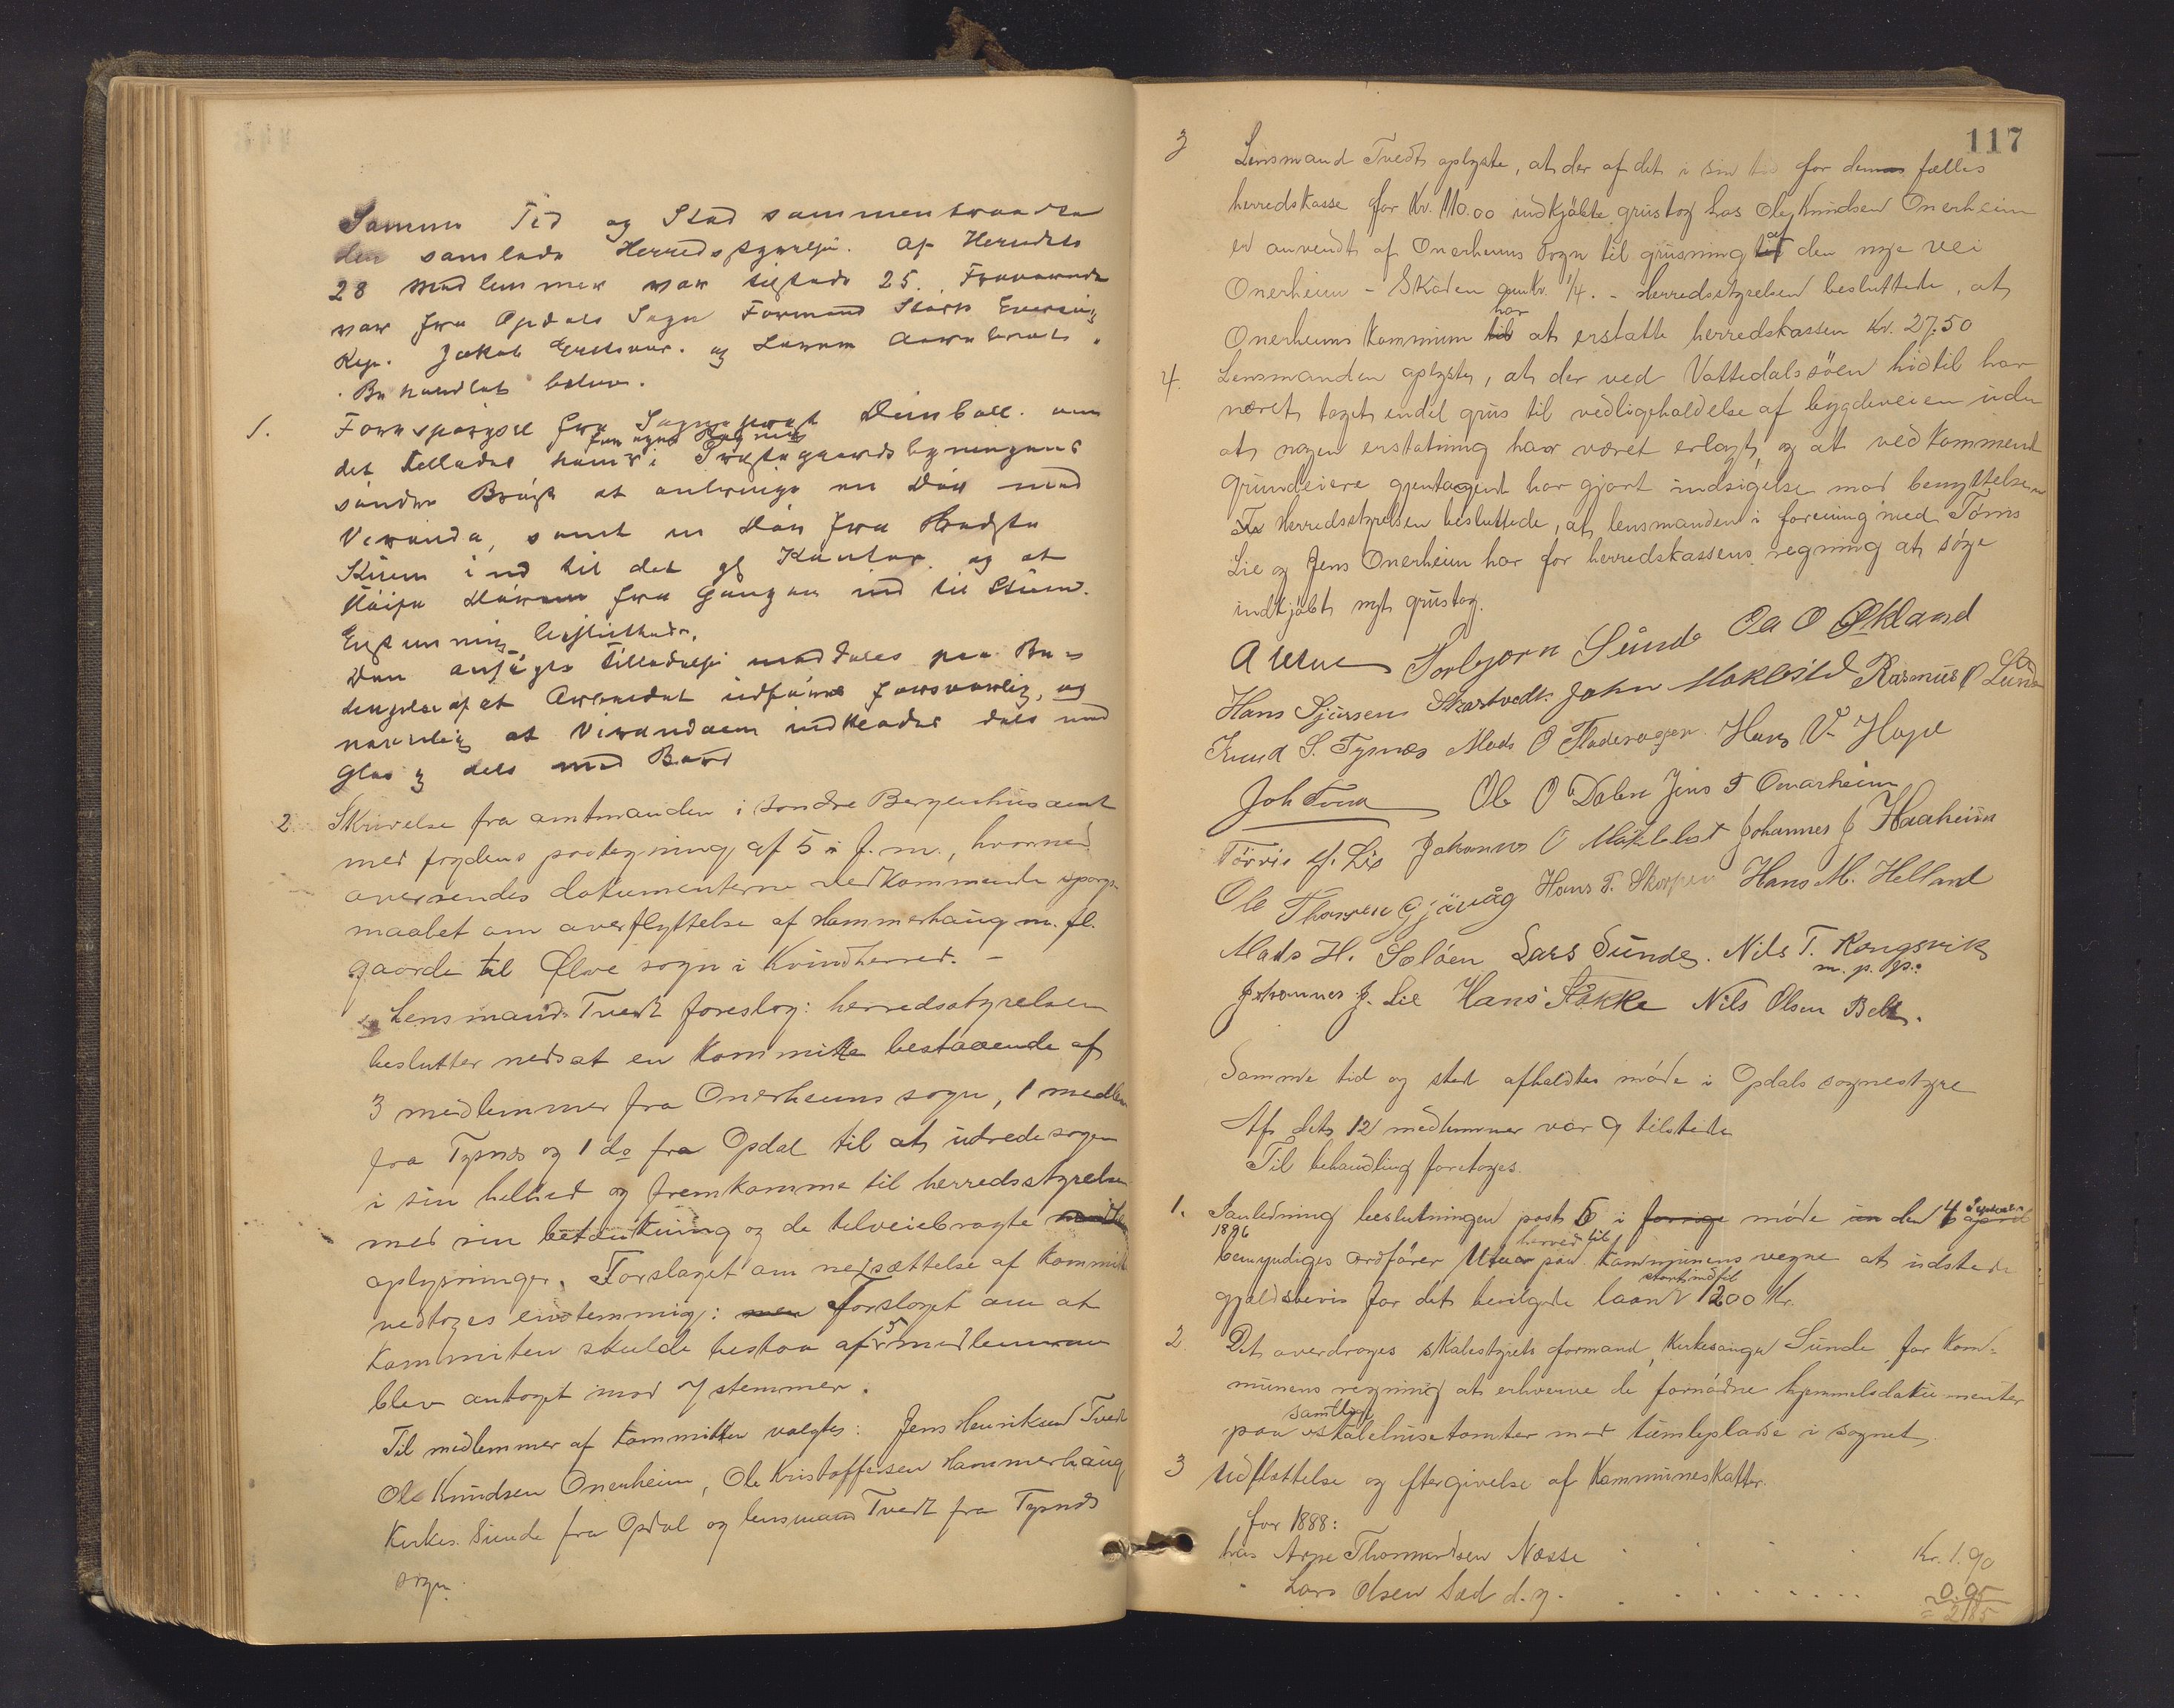 Samme Tid og Stad sammentraadte
den samlede Herredsstyrelse. Af Herredets
28 Medlemmer var tilstede 25. Fraværende
var fra Opdals Sogn Formand Stark
Rep. Jakob og
Behandlet blev.
1. Forespørgsel fra Sogneprest om
det tillades ham for egen Regning i Prestegaardsbygningens
søndre Bröst at anbringe en Dör med
Veranda, samt en Dör fra
Stuen ind til det gl Kontor og at
Dören fra Gangen ind til Stuen.
Enstemmig besluttede.
Den ansøgte Tilladelse meddeles paa Be-
tingelse af at Arbeidet udføres forsvarlig, og
navnlig at Verandaen indklædes dels med
Glas og dels med Bord
2. Skrivelse fra amtmanden i Söndre Bergenhus amt
med fogdens paategning af 5 i f. m., hvormed
oversendes dokumenterne vedkommende spørgs-
maalet om overflyttelse af Hammerhaug m. fl.
gaarde til Ølve sogn i Kvindherred. –
Lensmand Tvedt foreslog: herredsstyrelsen
beslutter nedsat en kommitte bestaaende af
3 medlemmer fra Onerheims sogn, 1 medlem
fra Tysnes og 1 do fra Opdal til at udrede sagen
i sin helhed og fremkomme til herredsstyrelsen
med sin betænkning og de tilveiebragte
oplysninger. Forslaget om nedsættelse af kommitte
vedtoges enstemmig: men forslaget om at
kommiteen skulde bestaa af 5 medlemmer
blev antaget mod 7 stemmer.
Til medlemmer af kommitteen valgtes: Jens Henriksen Tvedt
Ole Knudsen Onerheim, Ole Kristoffersen Hammerhaug
Kirkes. Sunde fra Opdal og lensmand Tvedt fra Tysnes
sogn.
117
3 Lensmand Tvedt oplyste, at der af det i sin tid for den fælles
herredskasse for Kr. 110.00 indkjøbte grustag hos Ole Knudsen Onerheim
er anvendt af Onerheims sogn til grusning af den nye vei
Onerheim – Skaden omkr. 1/4. – Herredsstyrelsen besluttede, at
Onerheims kommune har at erstatte herredskassen Kr. 27.50
4. Lensmanden oplyste, at der ved Vattedalssöen hidtil har
været taget endel grus til vedligeholdelse af bygdeveien uden
at nogen erstatning har været erlagt, og at vedkommende
grundeiere gjentagent har gjort indsigelse mod benyttelsen
Herredsstyrelsen besluttede, at lensmanden i forening med Törris
Lie og Jens Onerheim har for herredskassens regning at søge
indkjøbt nyt grustag.
Torbjørn Sunde Ola O Økland
Hans Sjursen Skartvedt. John Maklöst Rasmus O Lunde
Knud S. Tysnes Mads O Fladeragjer Hans V. Hope
Joh Tvedt Ole O Dalen Jens T Onarheim
Törris J. Lie Johannes O Maklöst Johannes J Haaheim
Ole Gjövåg Hans T. Skorpen Hans M. Helland
Mads H. Solöen Lars Sunde. Nils T. Kongsvik
m. p. p.
Johannes J. Lie Hans Fökke Nils Olsen Belt.
Samme tid og sted afholdtes møde i Opdals sognestyre
Af dets 12 medlemmer var 9 tilstede
Til behandling foretoges.
1. I anledning beslutningen post 5 i forrige møde den 4 September
1896
bemyndiges ordfører Uur herved til paa kommunens vegne at udstede
gjældsbevis for det bevilgede laan stort indtil 1200 Kr.
2. Det overdroges skolestyrets formand, kirkesanger Sunde for kom-
munens regning at erhverve de fornødne hjemmelsdokumenter
paa samtlige skolehusetomter med tumlepladse i sognet.
3 Udsættelse og eftergivelse af kommuneskatter.
for 1888:
hos Arne Thomassen Næsse . . . . Kr. 1.90
" Lars Olsen Sæd d. y. . . . . . . . 0.95
= 2.85